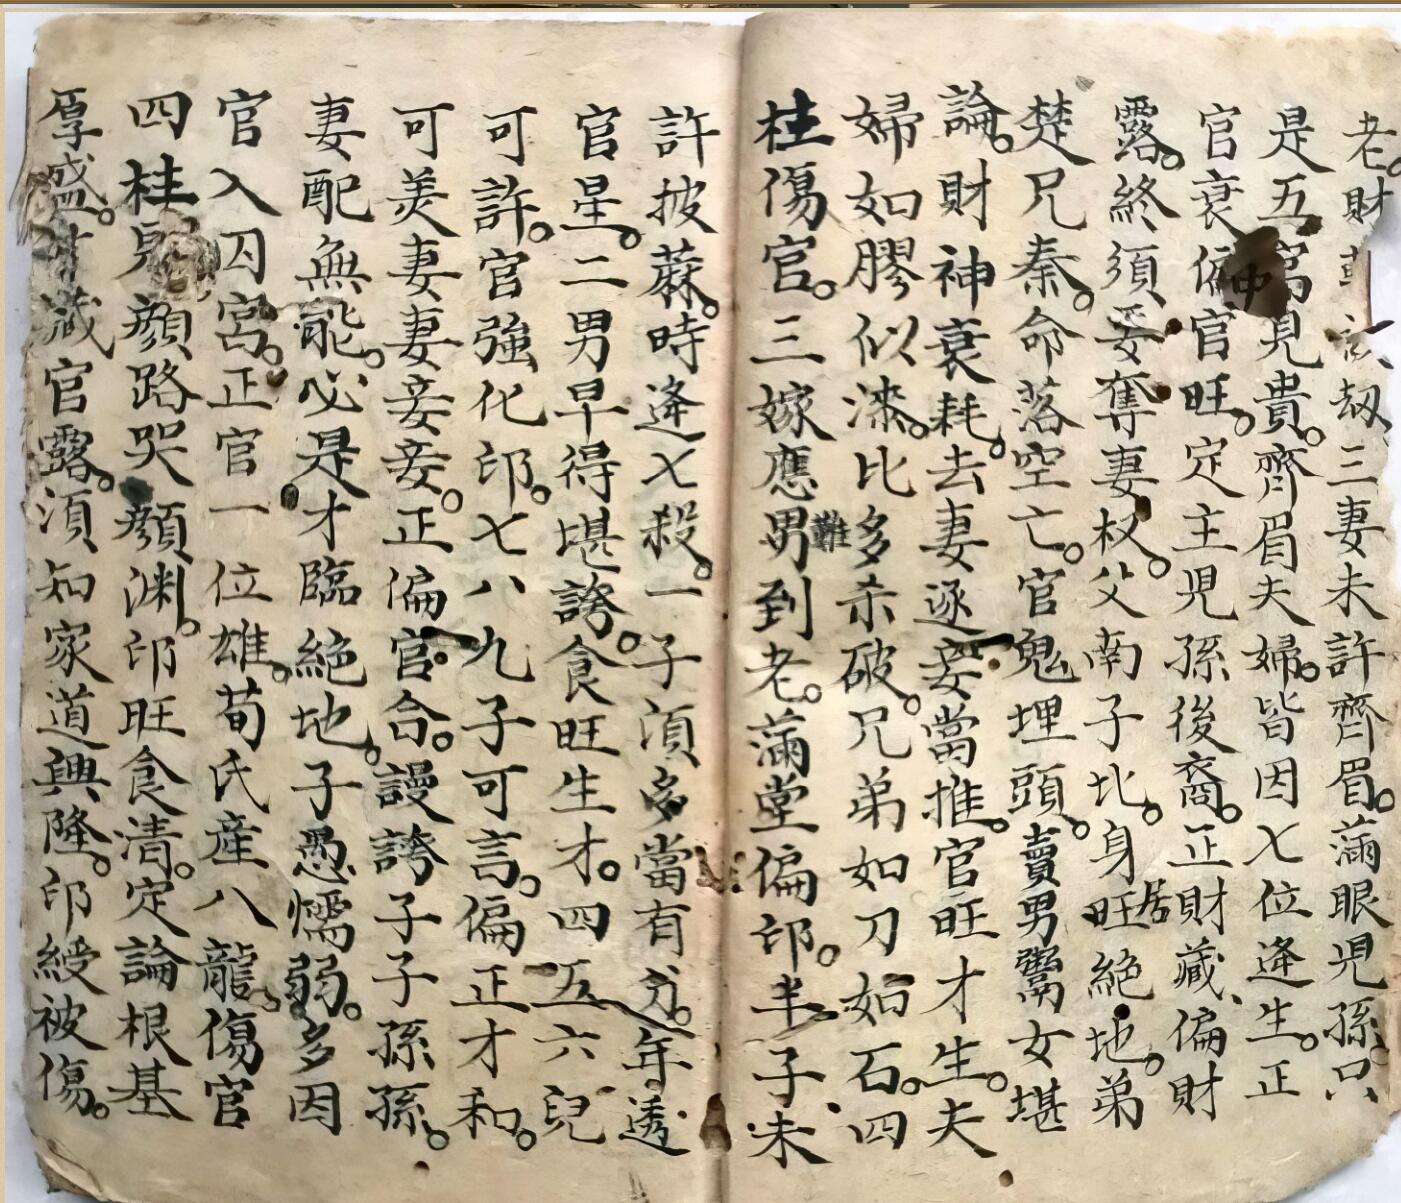 老。財劫三妻未許齊眉。滿眼児孫。只
是五宮見貴。齊眉夫婦。皆因七位逢生。正
官衰偏官旺。定主児孫後裔。正財藏、偏財
露。終須妾奪妻权。父南子北。身旺居絕地。弟
楚兄秦。命落空亡。官鬼埋頭。賣男鬻女堪
論。財神衰耗。去妻逐妾當推。官旺才生。夫
婦如膠似漆。比多杀破。兄弟如刀如石。四
柱傷官。三嫁應男難到老。滿堂偏印。半子未
許披蔴。時逢七殺。一子湏多當有分。年透
官星。二男早得堪誇。食旺生才。四五六兒
可許。官強化印。七八九子可言。偏正才和。
可羙妻妻妾妾。正偏官合。謾誇子子孫孫。
妻配無能。必是才臨絕地。子愚懦弱。多因
官入囚宮。正官一位雄。荀氏産八龍。傷官
四柱見顔路哭顔渊。印旺食清。定論根基
厚盛。才藏官露。湏知家道興隆。印綬被傷。